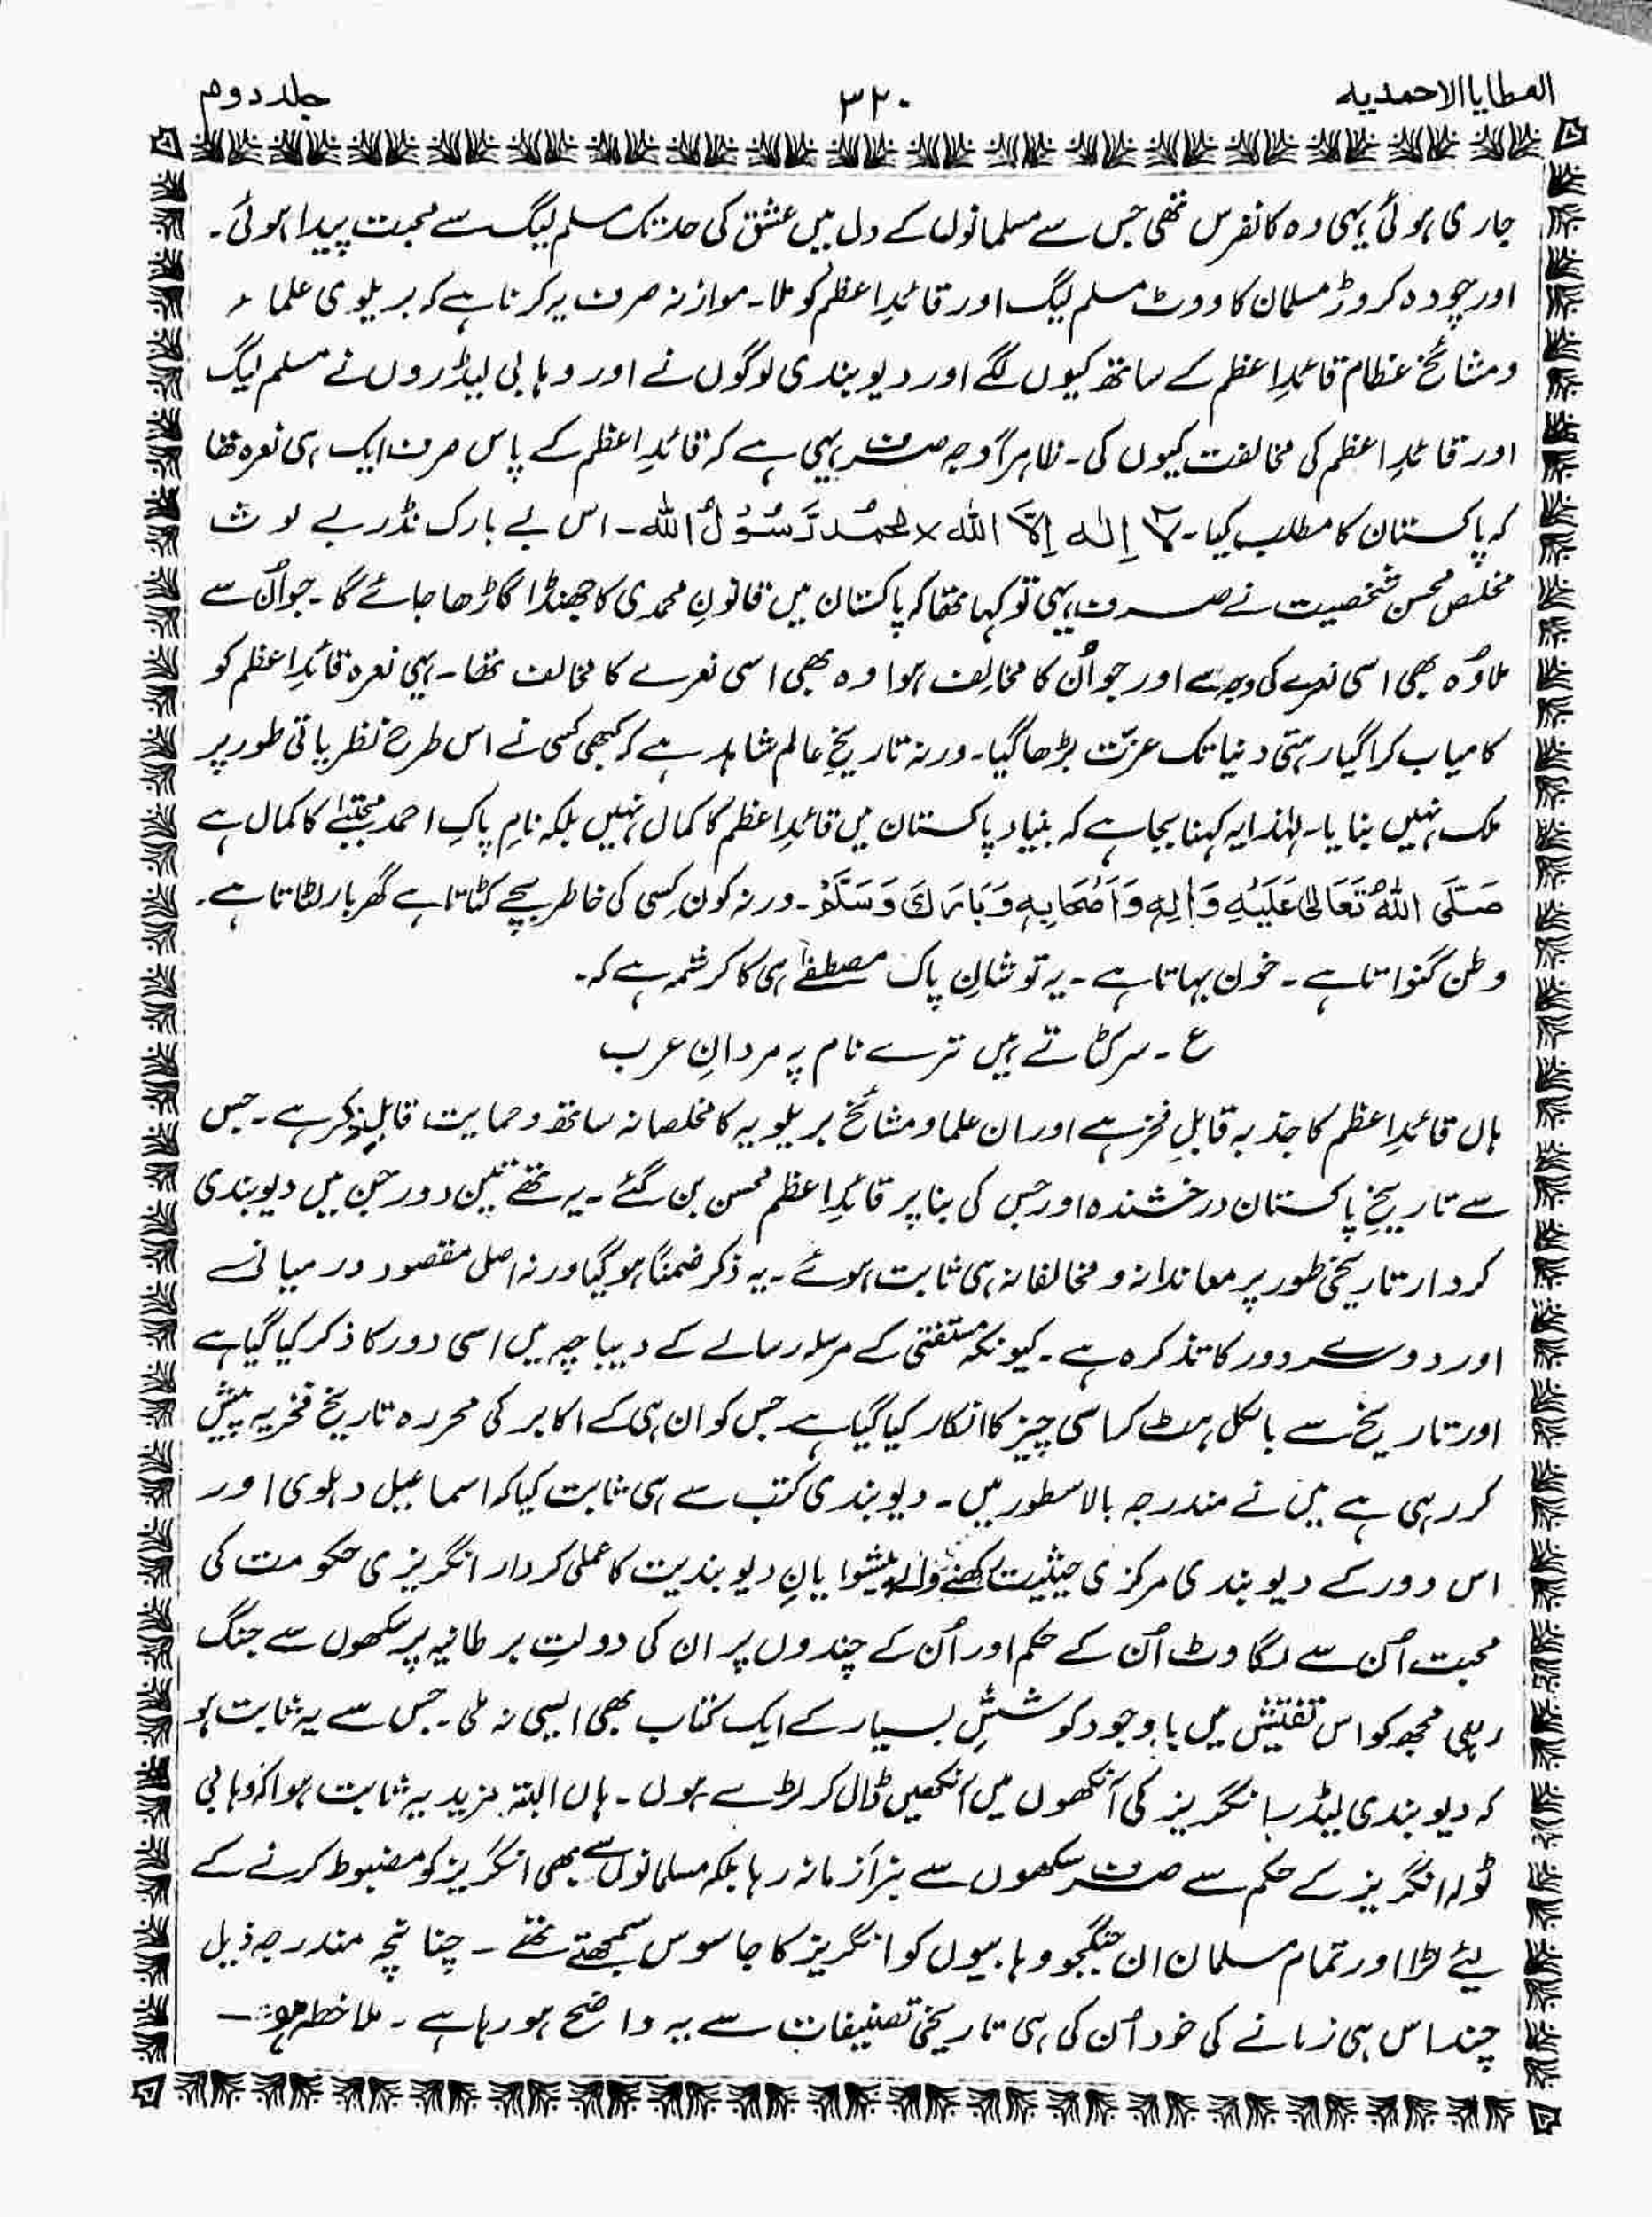 العطایا الاحمدیه
۳۲۰
جلد دوم
جاری ہوئی یہی وہ کانفرس تھی جس سے مسلمانوں کے دل میں عشق کی حد تک مسلم لیگ سے محبت پیدا ہوئی۔
اور چودہ کروڑ مسلمان کا ووٹ مسلم لیگ اور قائدِ اعظم کو ملا۔ موازنہ صرف یہ کرنا ہے کہ بریلوی علماء
ومشائخ عظام قائدِ اعظم کے ساتھ کیوں لگے اور دیوبندی لوگوں نے اور وہابی لیڈروں نے مسلم لیگ
اور قائدِ اعظم کی مخالفت کیوں کی۔ ظاہراً وجہ صرف یہی ہے کہ قائدِ اعظم کے پاس صرف ایک ہی نعرہ تھا
کہ پاکستان کا مطلب کیا۔ لَا اِلٰہ اِلَّا اللہ محمد رَّسُوْلُ اللہ۔ اس بے باک نڈر بے لوث
مخلص محسن شخصیت نے صرف یہی تو کہا تھا کہ پاکستان میں قانونِ محمدی کا جھنڈا گاڑھا جائے گا۔ جو اُن سے
ملا وُہ بھی اسی نعرے کی وجہ سے اور جو اُن کا مخالِف ہوا وہ بھی اسی نعرے کا مخالف تھا۔ یہی نعرہ قائدِ اعظم کو
کامیاب کرا گیا رہتی دنیا تک عزّت بڑھا گیا۔ ورنہ تاریخِ عالم شاہد ہے کہ کبھی کسی نے اس طرح نظریاتی طور پر
ملک نہیں بنایا۔ لہٰذا یہ کہنا بجا ہے کہ بنیاد پاکستان میں قائدِ اعظم کا کمال نہیں بلکہ نامِ پاکِ احمد مجتبےٰ کا کمال ہے
صَلَّی اللہُ تَعَالیٰ عَلَیْہِ وَاٰلِہٖ وَاَصْحَابِہٖ وَبَارَکَ وَسَلَّمْ۔ ورنہ کون کِسی کی خاطر بچے کٹاتا ہے گھر بار لٹاتا ہے۔
وطن گنواتا ہے۔ خون بہاتا ہے۔ یہ تو شانِ پاک مصطفےٰ ہی کا کرشمہ ہے کہ۔
ع۔ سر کٹاتے ہیں ترے نام پہ مردانِ عرب
ہاں قائدِ اعظم کا جذبہ قابلِ فخر ہے اور ان علما و مشائخ بریلویہ کا مخلصانہ ساتھ و حمایت قابلِ ذکر ہے۔ جس
سے تاریخِ پاکستان درخشندہ اور جس کی بنا پر قائدِ اعظم محسن بن گئے۔ یہ تھے تین دور جن میں دیوبندی
کردار تاریخی طور پر معاندانہ و مخالفانہ ہی ثابت ہوئے۔ یہ ذکر ضمناً ہو گیا ورنہ اصل مقصود درمیانے
اور دوسرے دور کا تذکرہ ہے۔ کیونکہ مستفتی کے مرسلہ رسالے کے دیباچہ میں اسی دور کا ذکر کیا گیا ہے
اور تاریخ سے بالکل ہٹ کر اسی چیز کا انکار کیا گیا ہے جس کو ان ہی کے اکابر کی محررہ تاریخ فخریہ پیش
کر رہی ہے میں نے مندرجہ بالا سطور میں۔ دیوبندی کتب سے ہی ثابت کیا کہ اسماعیل دہلوی اور
اس دور کے دیوبندی مرکزی حیثیت رکھنے والے پیشوایانِ دیوبندیت کا عملی کردار انگریزی حکومت کی
محبت اُن سے لگاوٹ اُن کے حکم اور اُن کے چندوں پر ان کی دولتِ برطانیہ پر سکھوں سے جنگ
رہی مجھ کو اس تفتیش میں باوجود کوششِ بسیار کے ایک کتاب بھی ایسی نہ ملی۔ جس سے یہ ثابت ہو
کہ دیوبندی لیڈر انگریز کی آنکھوں میں آنکھیں ڈال کر لڑے ہوں۔ ہاں البتہ مزید یہ ثابت ہوا کہ وہابی
ٹولہ انگریز کے حکم سے صرف سکھوں سے نبرَد آزما نہ رہا بلکہ مسلمانوں سے بھی انگریز کو مضبوط کرنے کے
لیے لڑا اور تمام مسلمان ان جنگجو وہابیوں کو انگریز کا جاسوس سمجھتے تھے۔ چنانچہ مندرجہ ذیل
چند اس ہی زمانے کی خود اُن کی ہی تاریخی تصنیفات سے یہ واضح ہو رہا ہے۔ ملاحظہ ہو:۔